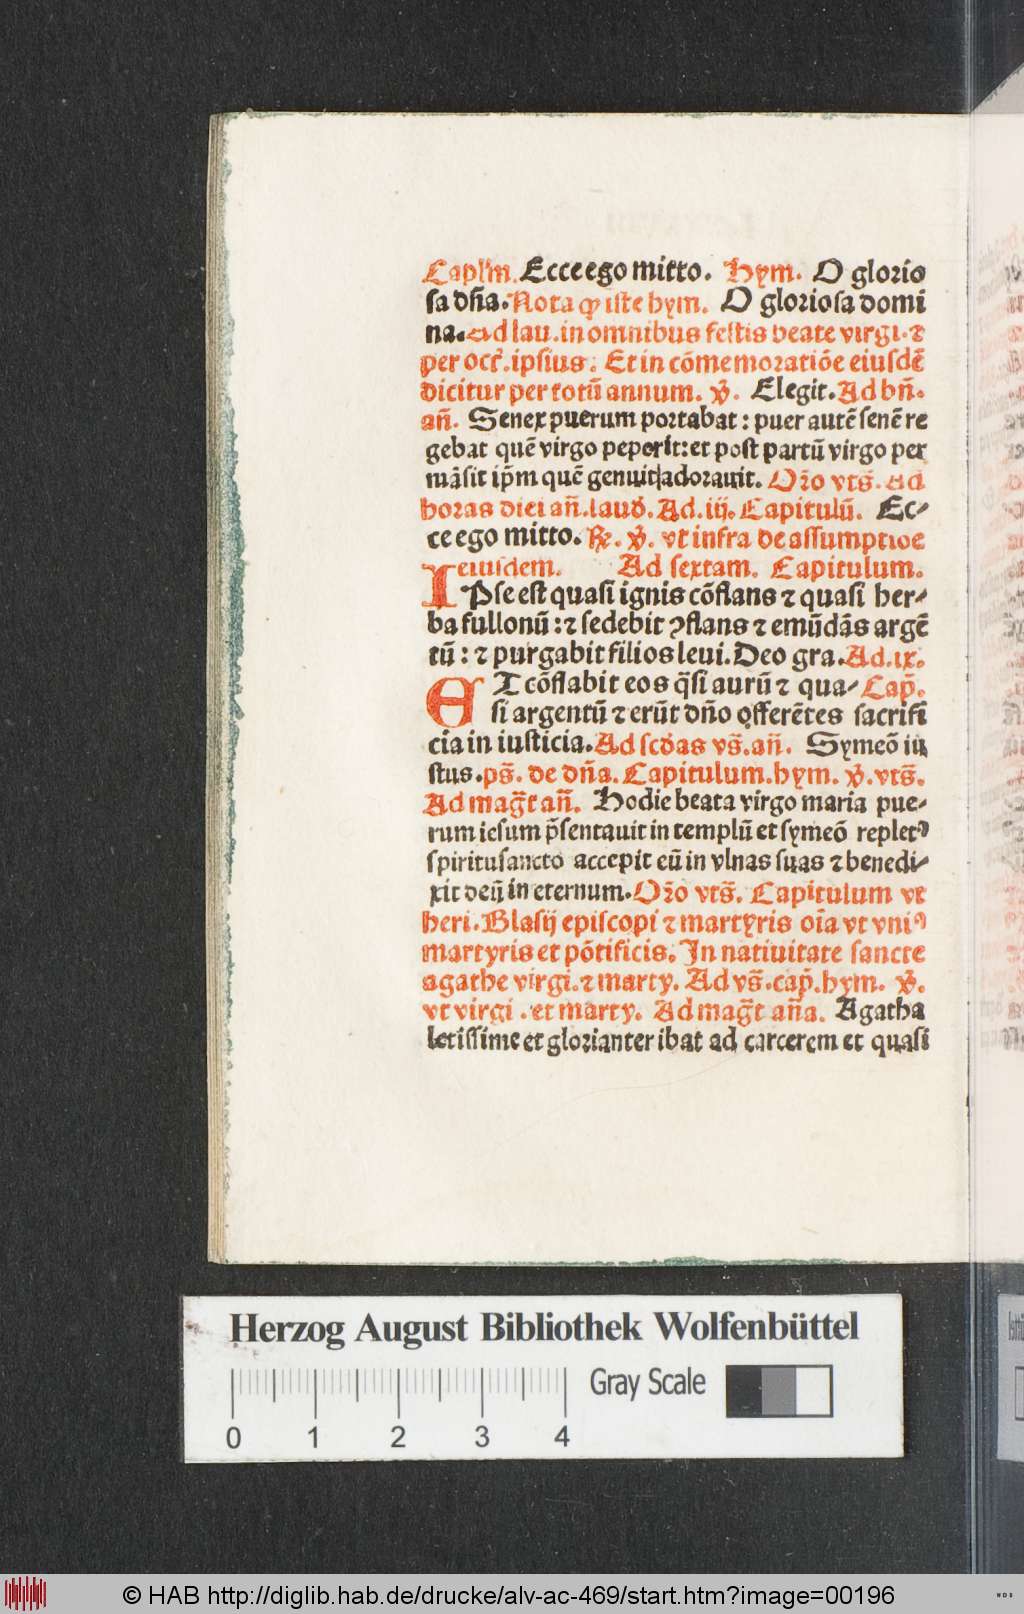 Capl'm. Ecce ego mitto. Hym. O glorio
sa dn̄a. Nota ꝙ iste hym. O gloriosa domi
na. ad lau. in omnibus festis beate virgi. ⁊
per occ̄. ipsius. Et in cōmemoratiōe eiusdē
dicitur per totū annum. v̄. Elegit. Ad bn̄.
an̄. Senex puerum portabat : puer autē senē re
gebat quē virgo peperit: et post partū virgo per
māsit ip̄m quē genuit adorauit. Or̄o vts̄. ad
horas diei an̄. laud̄. Ad. iij. Capitulū. Ec⸗
ce ego mitto. R̄. v̄. vt infra de assumptiōe
eiusdem. Ad sextam. Capitulum.
IPse est quasi ignis cōflans ⁊ quasi her⸗
ba fullonū : ⁊ sedebit ꝯflans ⁊ emūdās argē
tū : ⁊ purgabit filios leui. Deo gra. Ad. ix.
ET cōflabit eos q̄si aurū ⁊ qua⸗ Cap̄.
si argentū ⁊ erūt dn̄o offerētes sacrifi
cia in iusticia. Ad scd̄as vs̄. an̄. Symeō iu
stus. ps̄. de dn̄a. Capitulum. hym. v̄. vts̄.
Ad maḡt an̄. Hodie beata virgo maria pue⸗
rum iesum p̄sentauit in templū et symeō replet⁹
spiritusancto accepit eū in vlnas suas ⁊ benedi⸗
xit deū in eternum. Or̄o vts̄. Capitulum vt
heri. Blasij episcopi ⁊ martyris oīa vt vni⁹
martyris et pōtificis. In natiuitate sancte
agathe virgi. ⁊ marty. Ad vs̄. cap̄. hym. v̄.
vt virgi . et marty. Ad maḡt an̄a. Agatha
letissime et glorianter ibat ad carcerem et quasi
Herzog August Bibliothek Wolfenbüttel
Gray Scale
0 1 2 3 4
© HAB http://diglib.hab.de/drucke/alv-ac-469/start.htm?image=00196